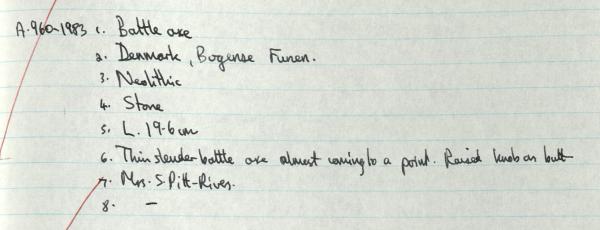 A.960-1983 1. Battle axe
2. Denmark, Bogense Funen.
3. Neolithic
4. Stone
5. L. 19.6 cm
6. Thin slender battle axe almost coming to a point. Raised knob on butt
7. Mrs. S. Pitt-Rivers.
8. —